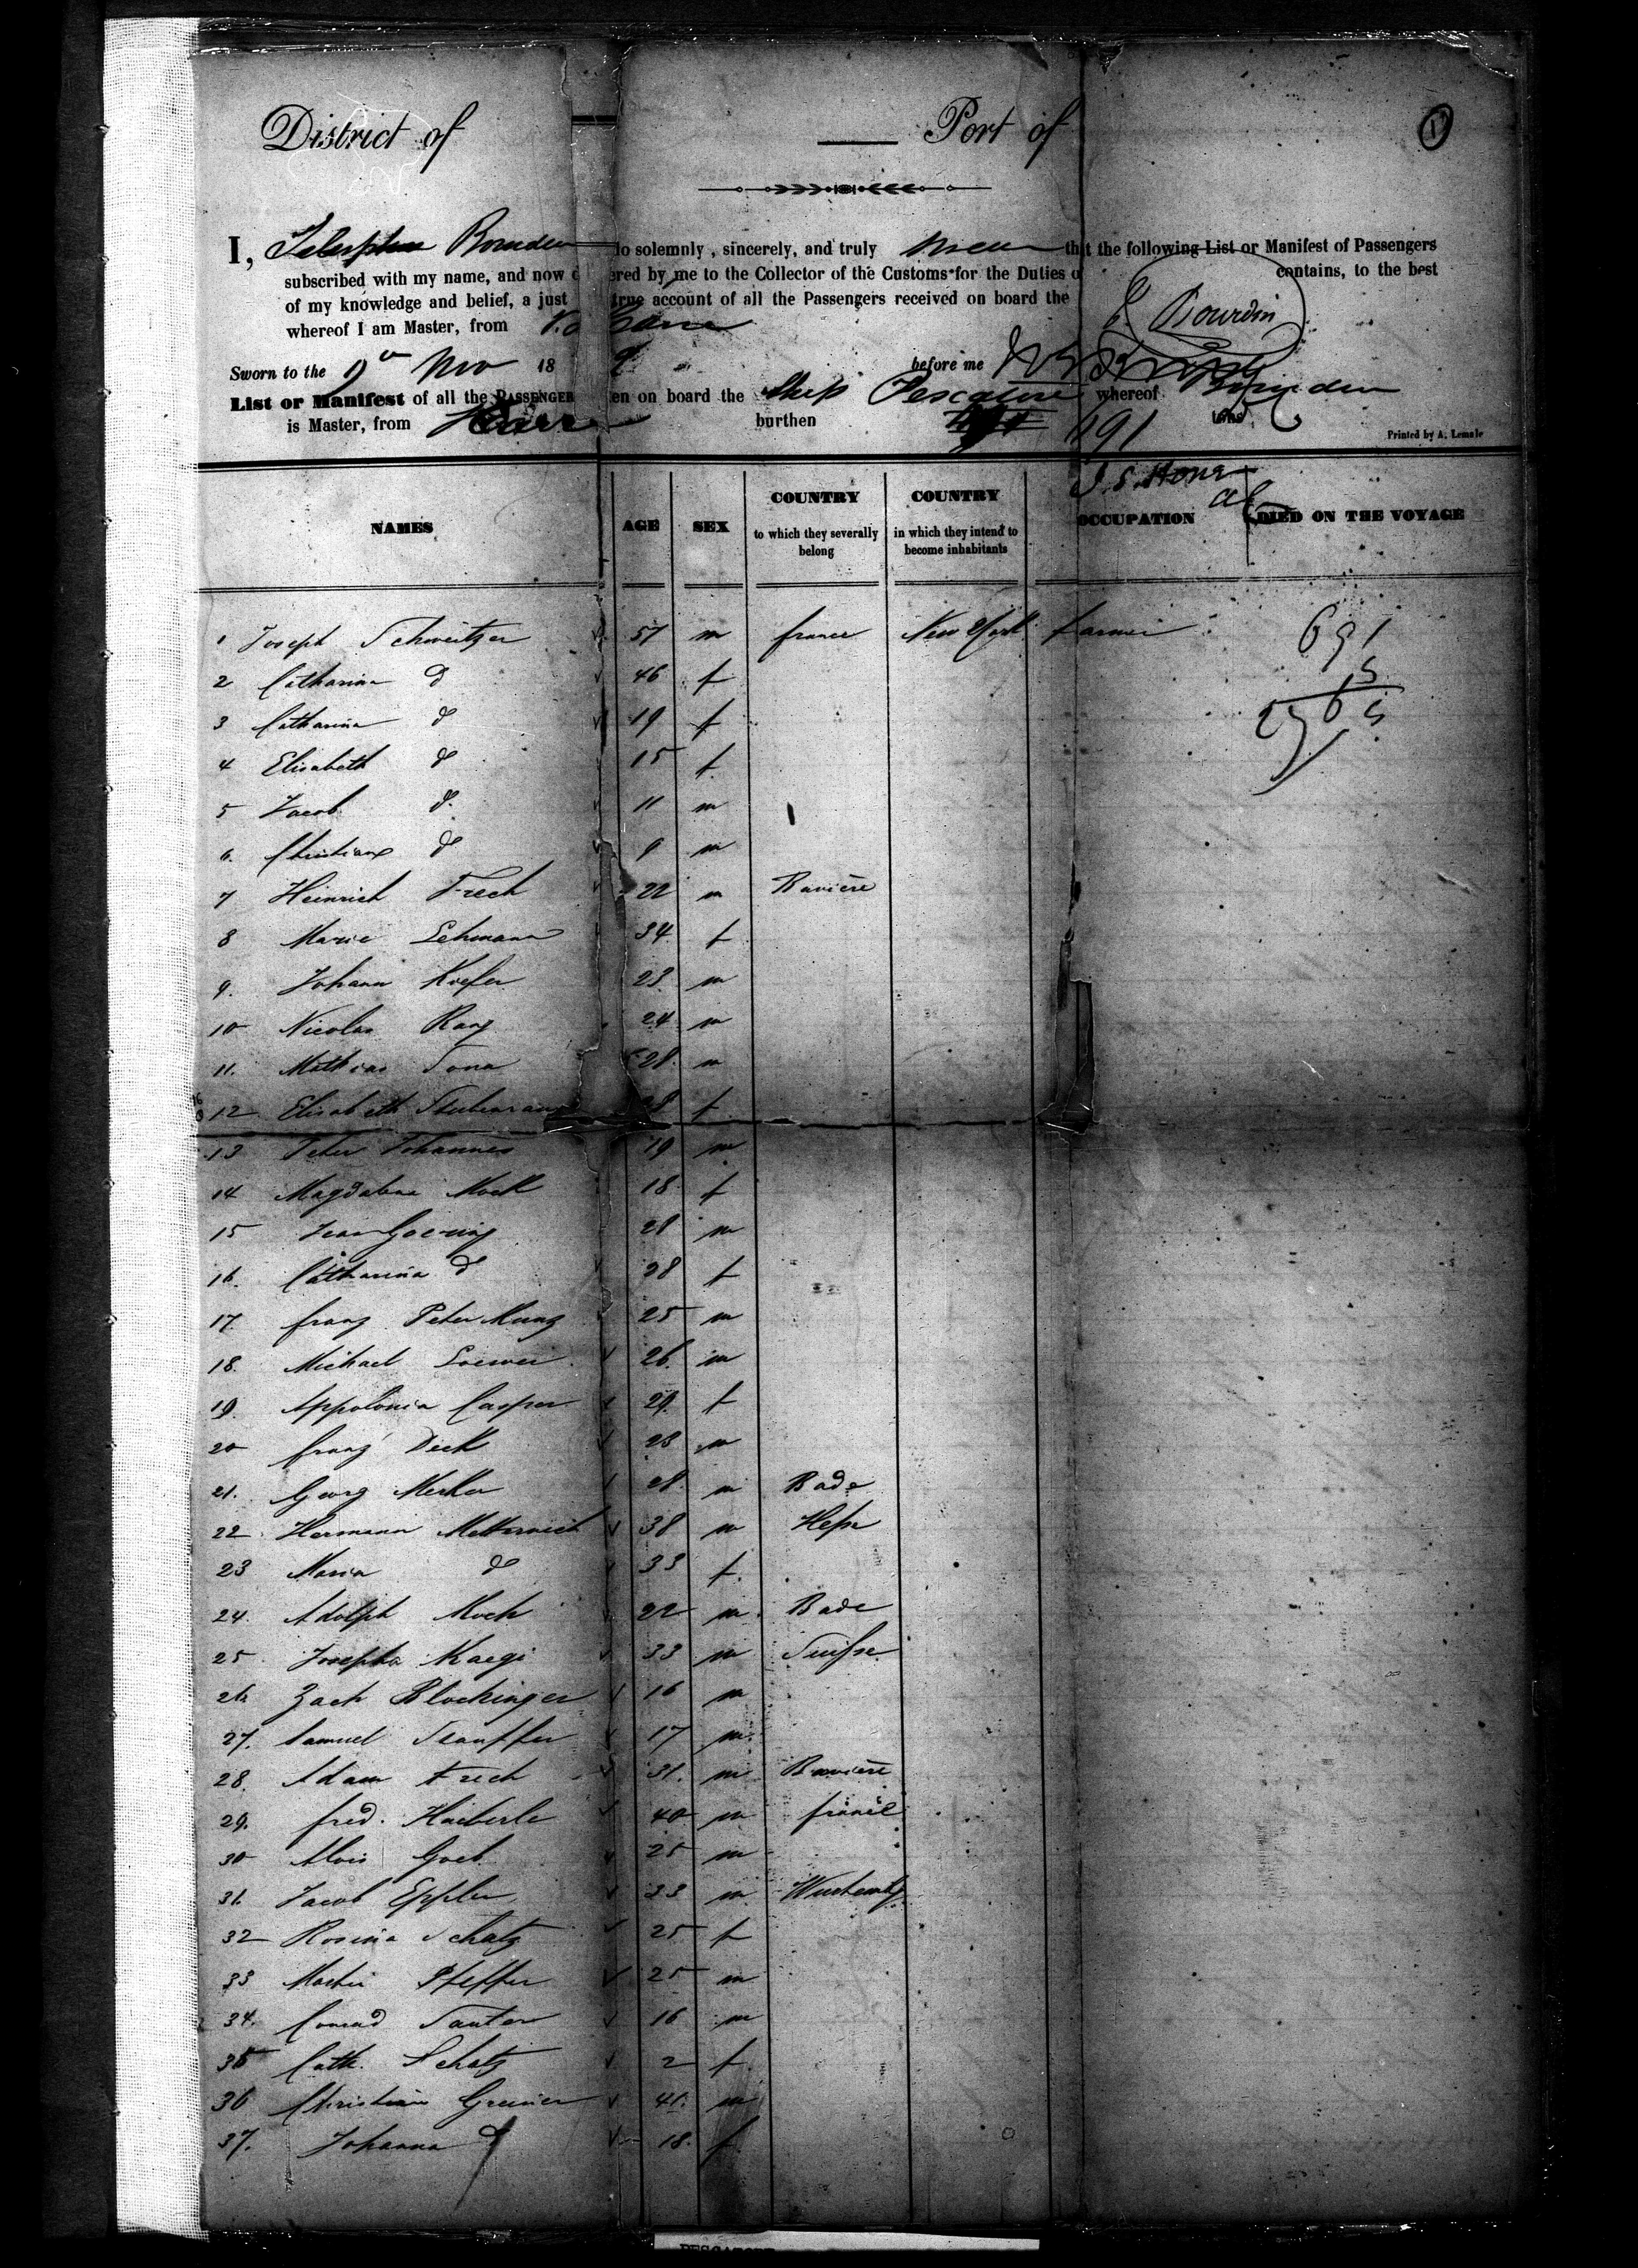 District of Port of
1
I, Bourden do solemnly, sincerely, and truly swear that the following List or Manifest of Passengers
subscribed with my name, and now ered by me to the Collector of the Customs for the Duties o contains, to the best
of my knowledge and belief, a just true account of all the Passengers received on board the
whereof I am Master, from
Bourdin
Sworn to the 9 Nov 18 before me
List or Manifest of all the PASSENGER en on board the Ship Pescatore whereof Bourden
is Master, from Havre burthen 191 tons
Printed by A. Lemale
NAMES AGE SEX COUNTRY to which they severally belong COUNTRY in which they intend to become inhabitants OCCUPATION DIED ON THE VOYAGE
1 Joseph Schweitzer 57 m france New York farmer 691
2 Catharina d 46 f 5
3 Catharina d 19 f
4 Elisabeth d 15 f
5 Jacob d 11 m
6. Christian d 9 m
7 Heinrich Frech 22 m Bavière
8 Marie Lehmann 34 f
9. Johann Kiefer 23 m
10 Nicolas Rang 24 m
11. Mathias 28 m
12 Elisabeth 28 f
13 Peter Johannes 19 m
14 Magdalena Mock 18 f
15 Jean Goering 28 m
16. Catharina d 28 f
17. franz Peter Munz 25 m
18. Michael 26 m
19. Appolonia Casper 29 f
20 franz Deck 23 m
21. Georg Merker 28 m Bade
22 Hermann Metternich 38 m Hesse
23 Maria d 33 f.
24. Adolph Koch 22 m. Bade
25 Joseph Kaegi 33 m Suisse
26. Zach Blockinger 16 m
27. Samuel Stauffer 17 m.
28. Adam Frech 31. m Bavière
29. fred. Haeberle 40 m france
30 Alois Goeb 25 m
31. Jacob Eppler 33 m Wurtemb
32 Rosina Schatz 25 f
33 Martin Pfeffer 25 m
34. Conrad Sauter 16 m
35 Cath. Schatz 2 f.
36 Christian Greiner 41. m
37. Johanna d 18. f